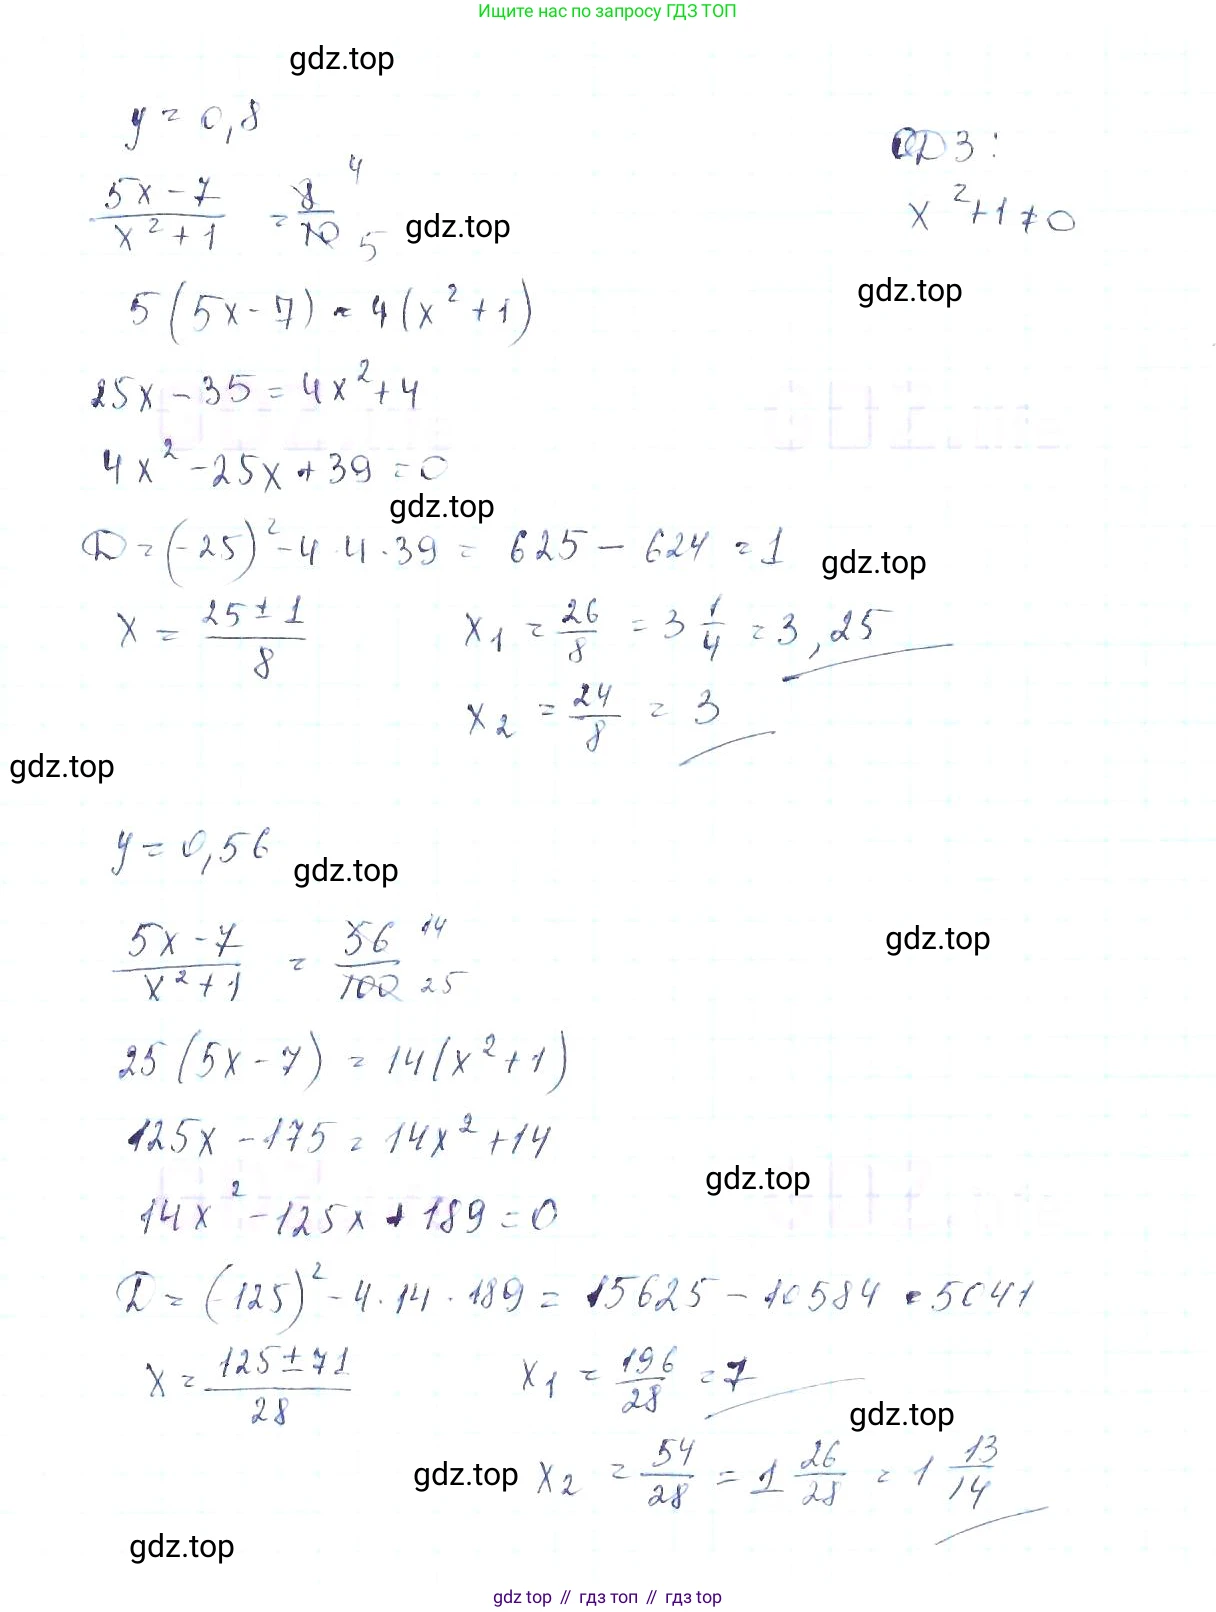 Ищите нас по запросу ГДЗ ТОП
gdz.top
y = 0,8
ОДЗ:
(5x - 7)/(x² + 1) = 8/10 4 5
gdz.top
x² + 1 ≠ 0
gdz.top
5(5x - 7) = 4(x² + 1)
25x - 35 = 4x² + 4
4x² - 25x + 39 = 0
gdz.top
D = (-25)² - 4 · 4 · 39 = 625 - 624 = 1
gdz.top
x = (25 ± 1)/8 x₁ = 26/8 = 3 1/4 = 3,25
x₂ = 24/8 = 3
gdz.top
y = 0,56
gdz.top
(5x - 7)/(x² + 1) = 56/100 14 25
gdz.top
25(5x - 7) = 14(x² + 1)
125x - 175 = 14x² + 14
gdz.top
14x² - 125x + 189 = 0
D = (-125)² - 4 · 14 · 189 = 15625 - 10584 = 5041
x = (125 ± 71)/28 x₁ = 196/28 = 7
gdz.top
gdz.top x₂ = 54/28 = 1 26/28 = 1 13/14
gdz.top
gdz.top // гдз топ // gdz top